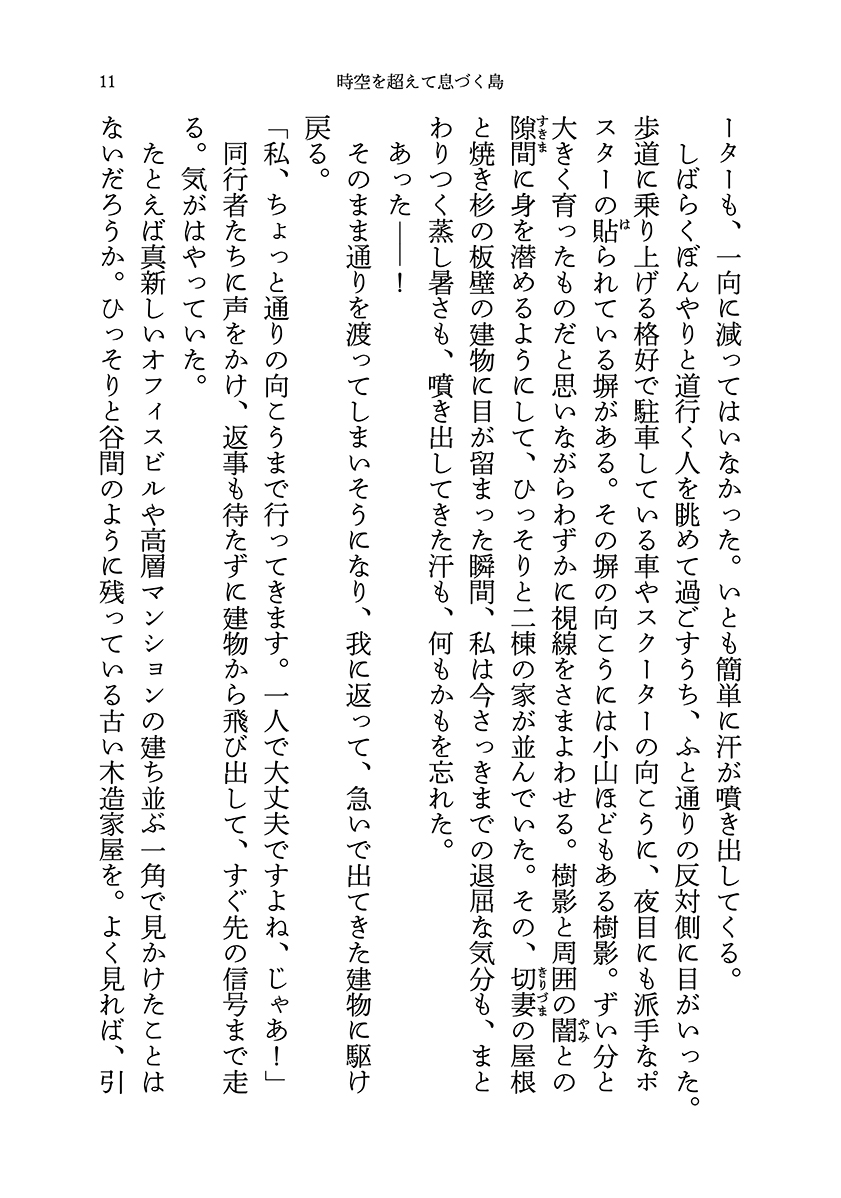 11
時空を超えて息づく島
ーターも、一向に減ってはいなかった。いとも簡単に汗が噴き出してくる。
しばらくぼんやりと道行く人を眺めて過ごすうち、ふと通りの反対側に目がいった。
歩道に乗り上げる格好で駐車している車やスクーターの向こうに、夜目にも派手なポ
スターの貼られている塀がある。その塀の向こうには小山ほどもある樹影。ずい分と
大きく育ったものだと思いながらわずかに視線をさまよわせる。樹影と周囲の闇との
隙間に身を潜めるようにして、ひっそりと二棟の家が並んでいた。その、切妻の屋根
と焼き杉の板壁の建物に目が留まった瞬間、私は今さっきまでの退屈な気分も、まと
わりつく蒸し暑さも、噴き出してきた汗も、何もかもを忘れた。
あった――！
そのまま通りを渡ってしまいそうになり、我に返って、急いで出てきた建物に駆け
戻る。
「私、ちょっと通りの向こうまで行ってきます。一人で大丈夫ですよね、じゃあ！」
同行者たちに声をかけ、返事も待たずに建物から飛び出して、すぐ先の信号まで走
る。気がはやっていた。
たとえば真新しいオフィスビルや高層マンションの建ち並ぶ一角で見かけたことは
ないだろうか。ひっそりと谷間のように残っている古い木造家屋を。よく見れば、引